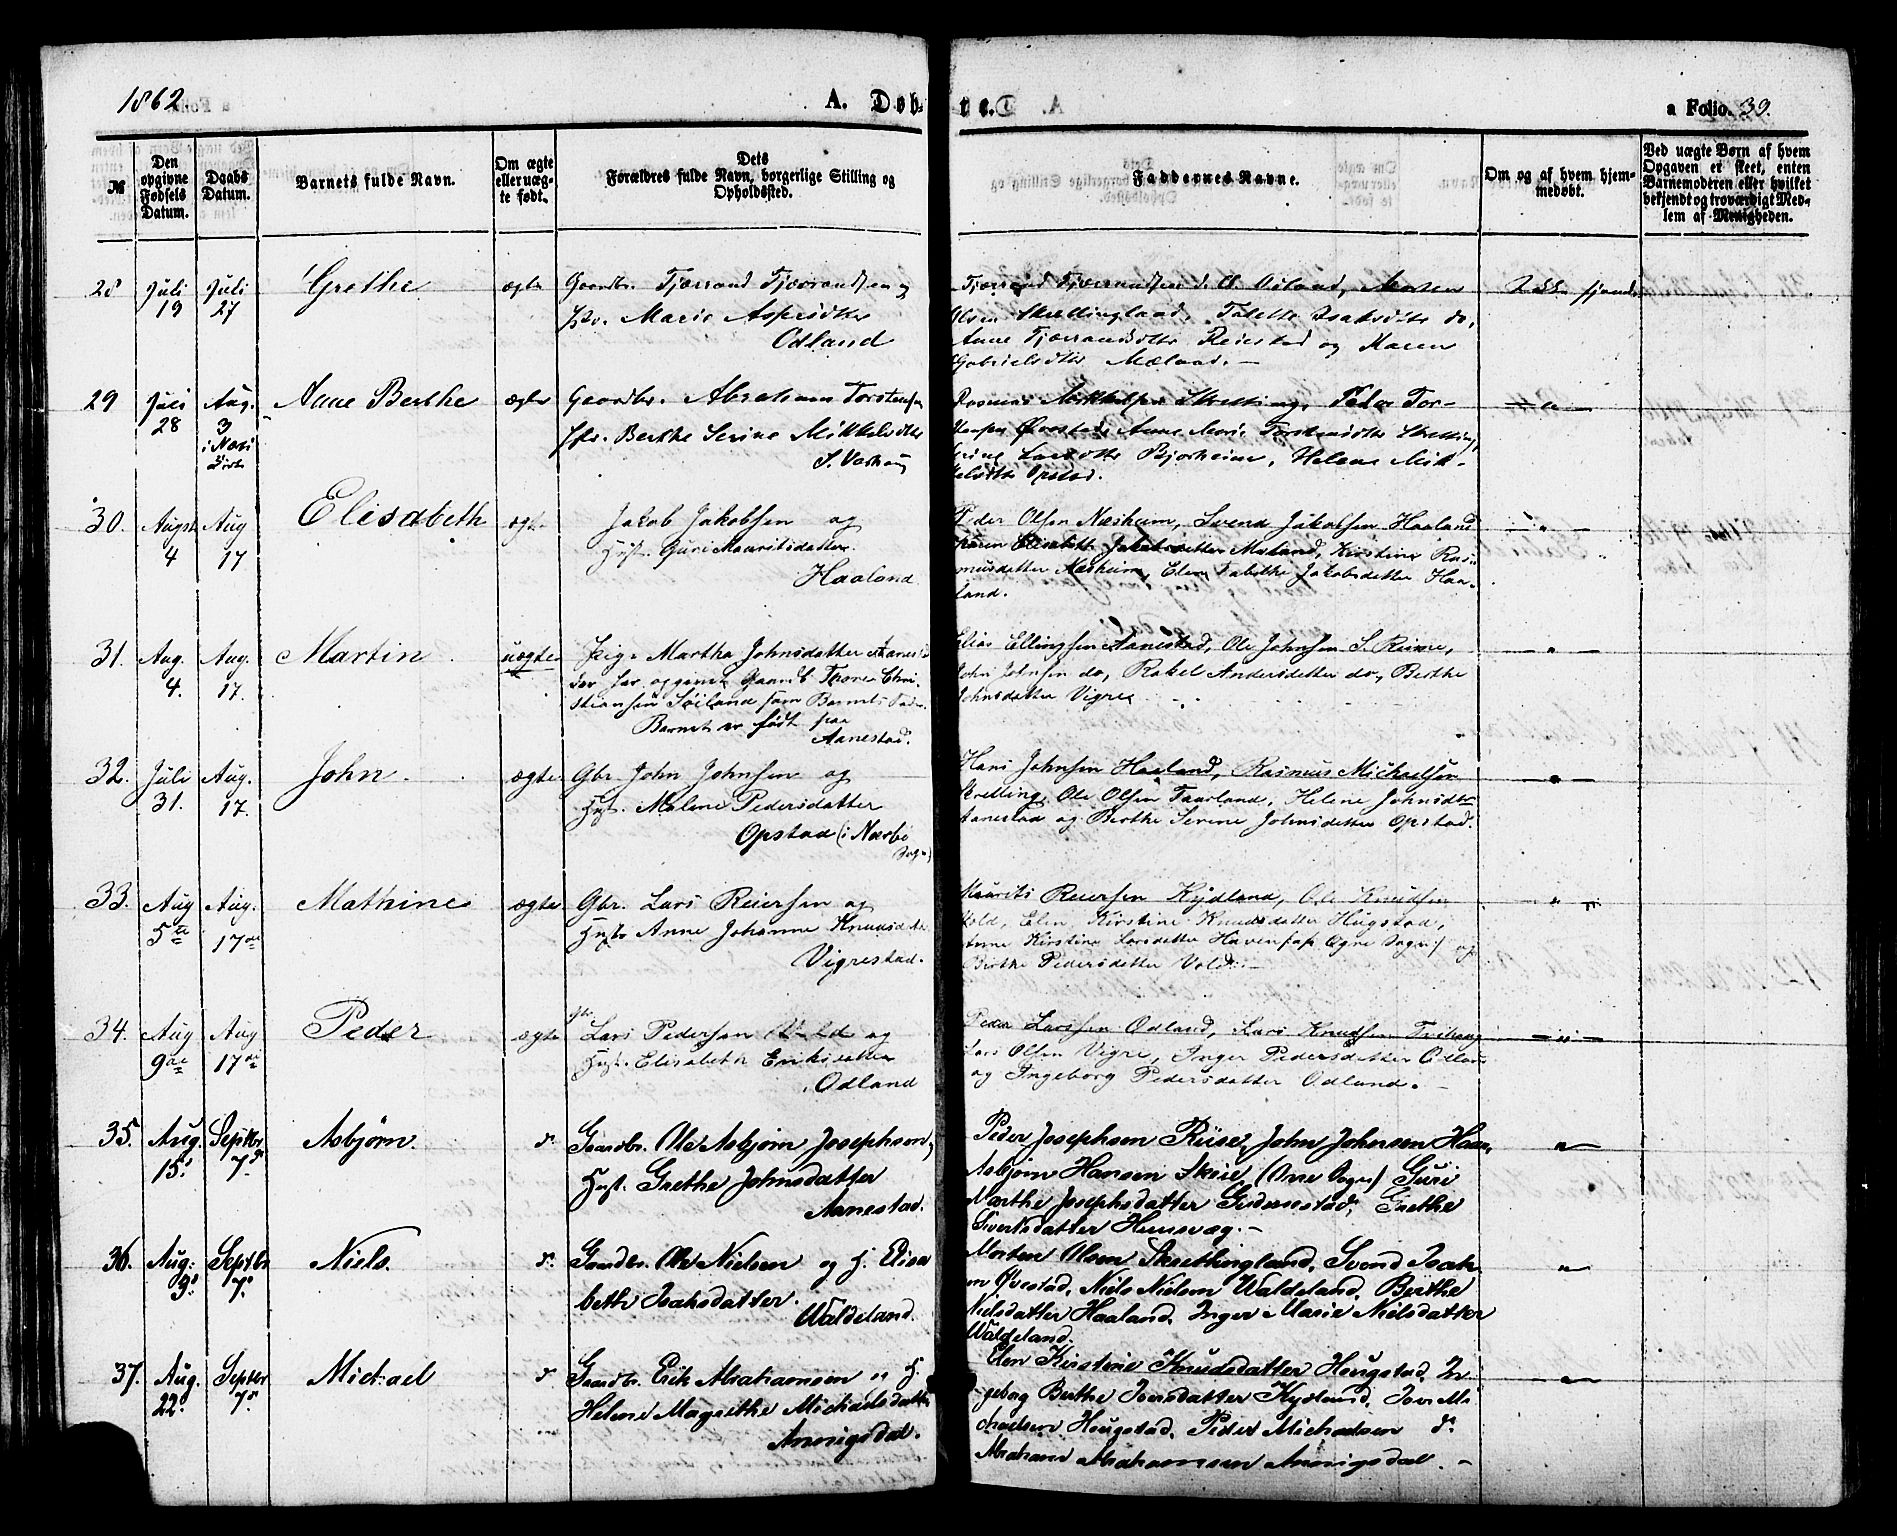 1862.
A. Døb-
te.
a Folio. 39.
№
Den opgivne Fødsels Datum.
Daabs Datum.
Barnets fulde Navn.
Om ægte eller uægte født.
Dets
Forældres fulde Navn, borgerlige Stilling og Opholdssted.
Faddernes Navne.
Om og af hvem hjemmedøbt.
Ved uægte Børn af hvem Opgaven er skeet, enten Barnemoderen eller hvilket bekjendt og troværdigt Medlem af Menigheden.
28 Juli 19 Juli 27 Grethe ægte Gaardbr. Tjærand Tjærandsen og
Marie Aspersdtr
Odland
Tjærand Tjærandsen Odland, Morten
Olsen Skretlingland, Talette Isaksdtr do,
Anne Tjærandsdtr Reiestad og Maren
Gabrielsdtr Mæland.
29 Juli 28 Aug. 3 i Næri Kirke Anne Berthe ægte Gaardbr. Abraham Torstensen
Berthe Serine Mikkelsdtr
S. Varhaug
Rasmus Mikkelsen Skretting, Peder Tor-
stensen Øvrestad, Anne Marie Torstensdtr Skretting,
Larsdtr Bjorheim, Helene Mik-
kelsdtr Opstad.
30. Augst 4 Aug 17 Elisabeth ægte Jakob Jakobsen og
Hust. Guri Mauritsdatter
Haaland
Peder Olsen Næsheim, Svend Jakobsen Haaland
Karen Elisabeth Jakobsdatter Maland, Kirstine Ras-
musdatter Næsheim, Elen Tabethe Jakobsdatter Haa-
land.
31. Aug. 4. Aug. 17. Martin uægte Pige Martha Johnsdatter Aanestad
der har opgivet Gaardb. Thore Chri-
stiansen Söiland som Barnets Fader.
Barnet er født paa
Aanestad.
Elias Ellingsen Aanestad, Ole Johnsen S. Reime,
John Johnsen do, Rakel Andersdatter do, Berthe
Johnsdatter Vigre
32. Juli 31. Aug. 17. John ægte Gbr. John Johnsen og
Hust. Malene Pedersdatter
Opstad (i Nærbø
Sogn)
Hans Johnsen Haaland, Rasmus Michaelsen
Skretting, Ole Olsen Taarland, Helene Johnsdtr
Aanestad og Berthe Serene Johnsdatter Opstad.
33. Aug 5te Aug. 17de Mathine ægte Gbr. Lars Reiersen og
Hustr Anne Johanne Knudsdtr
Vigrestad.
Maurits Reiersen Kydland, Ole Knudsen
Vold, Elen Kirstine Knudsdatter Hugstad,
Anne Kirstine Larsdatter Haven Ogne Sogn og
Berthe Pedersdatter Vold.
34. Aug 9de Aug 17de Peder ægte Lars Pedersen og
Hust. Elisabeth Eriksdatter
Odland
Peder Larssen Odland, Lars Knudsen
Lars Olsen Vigre, Inger Pedersdatter Odland
og Ingeborg Pedersdatter Odland.
35. Aug. 15. Septbr 7de Asbjørn. do Gaardbr. Ole Asbjørn Josephsen,
Hust. Grethe Johnsdatter
Aanestad.
Peder Josephsen Riise, John Johnsen Haa-
Asbjørn Hansen Skeie, (Ogne Sogn) Guri
Marthe Josephsdatter Gudmestad, Grethe
Sivertsdatter
36. Aug: 9. Septbr 7. Niels. do Gaardbr. Ole Nielsen og H. Elisa
beth Isaksdatter.
Waldeland.
Morten Olsen Skretlingland, Svend Isak-
sen Øvestad, Niels Nielsen Waldeland, Berthe
Nielsdatter Haaland, Inger Marie Nielsdatter
Waldeland.
37. Aug. 22. Septbr 7. Michael do Gaardbr. Erik Abrahamsen H.
Helene Magrethe Michaelsdatter
Anmigsdal.
Elen Kirstine Knudsdatter Hougstad, In-
geborg Berthe Iversdatter Kydland, Iver Mi-
chaelsen Hougstad, Peder Michaelsen do
Abraham Abrahamsen Anmigsdal.